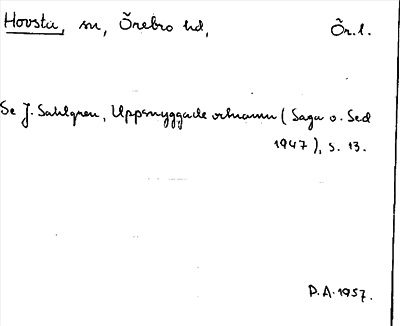 Hovsta, sn, Örebro hd, Ör.l.
Se J. Sahlgren, Uppsnyggade ortnamn (Saga o. Sed
1947), s. 13.
P.A. 1957.